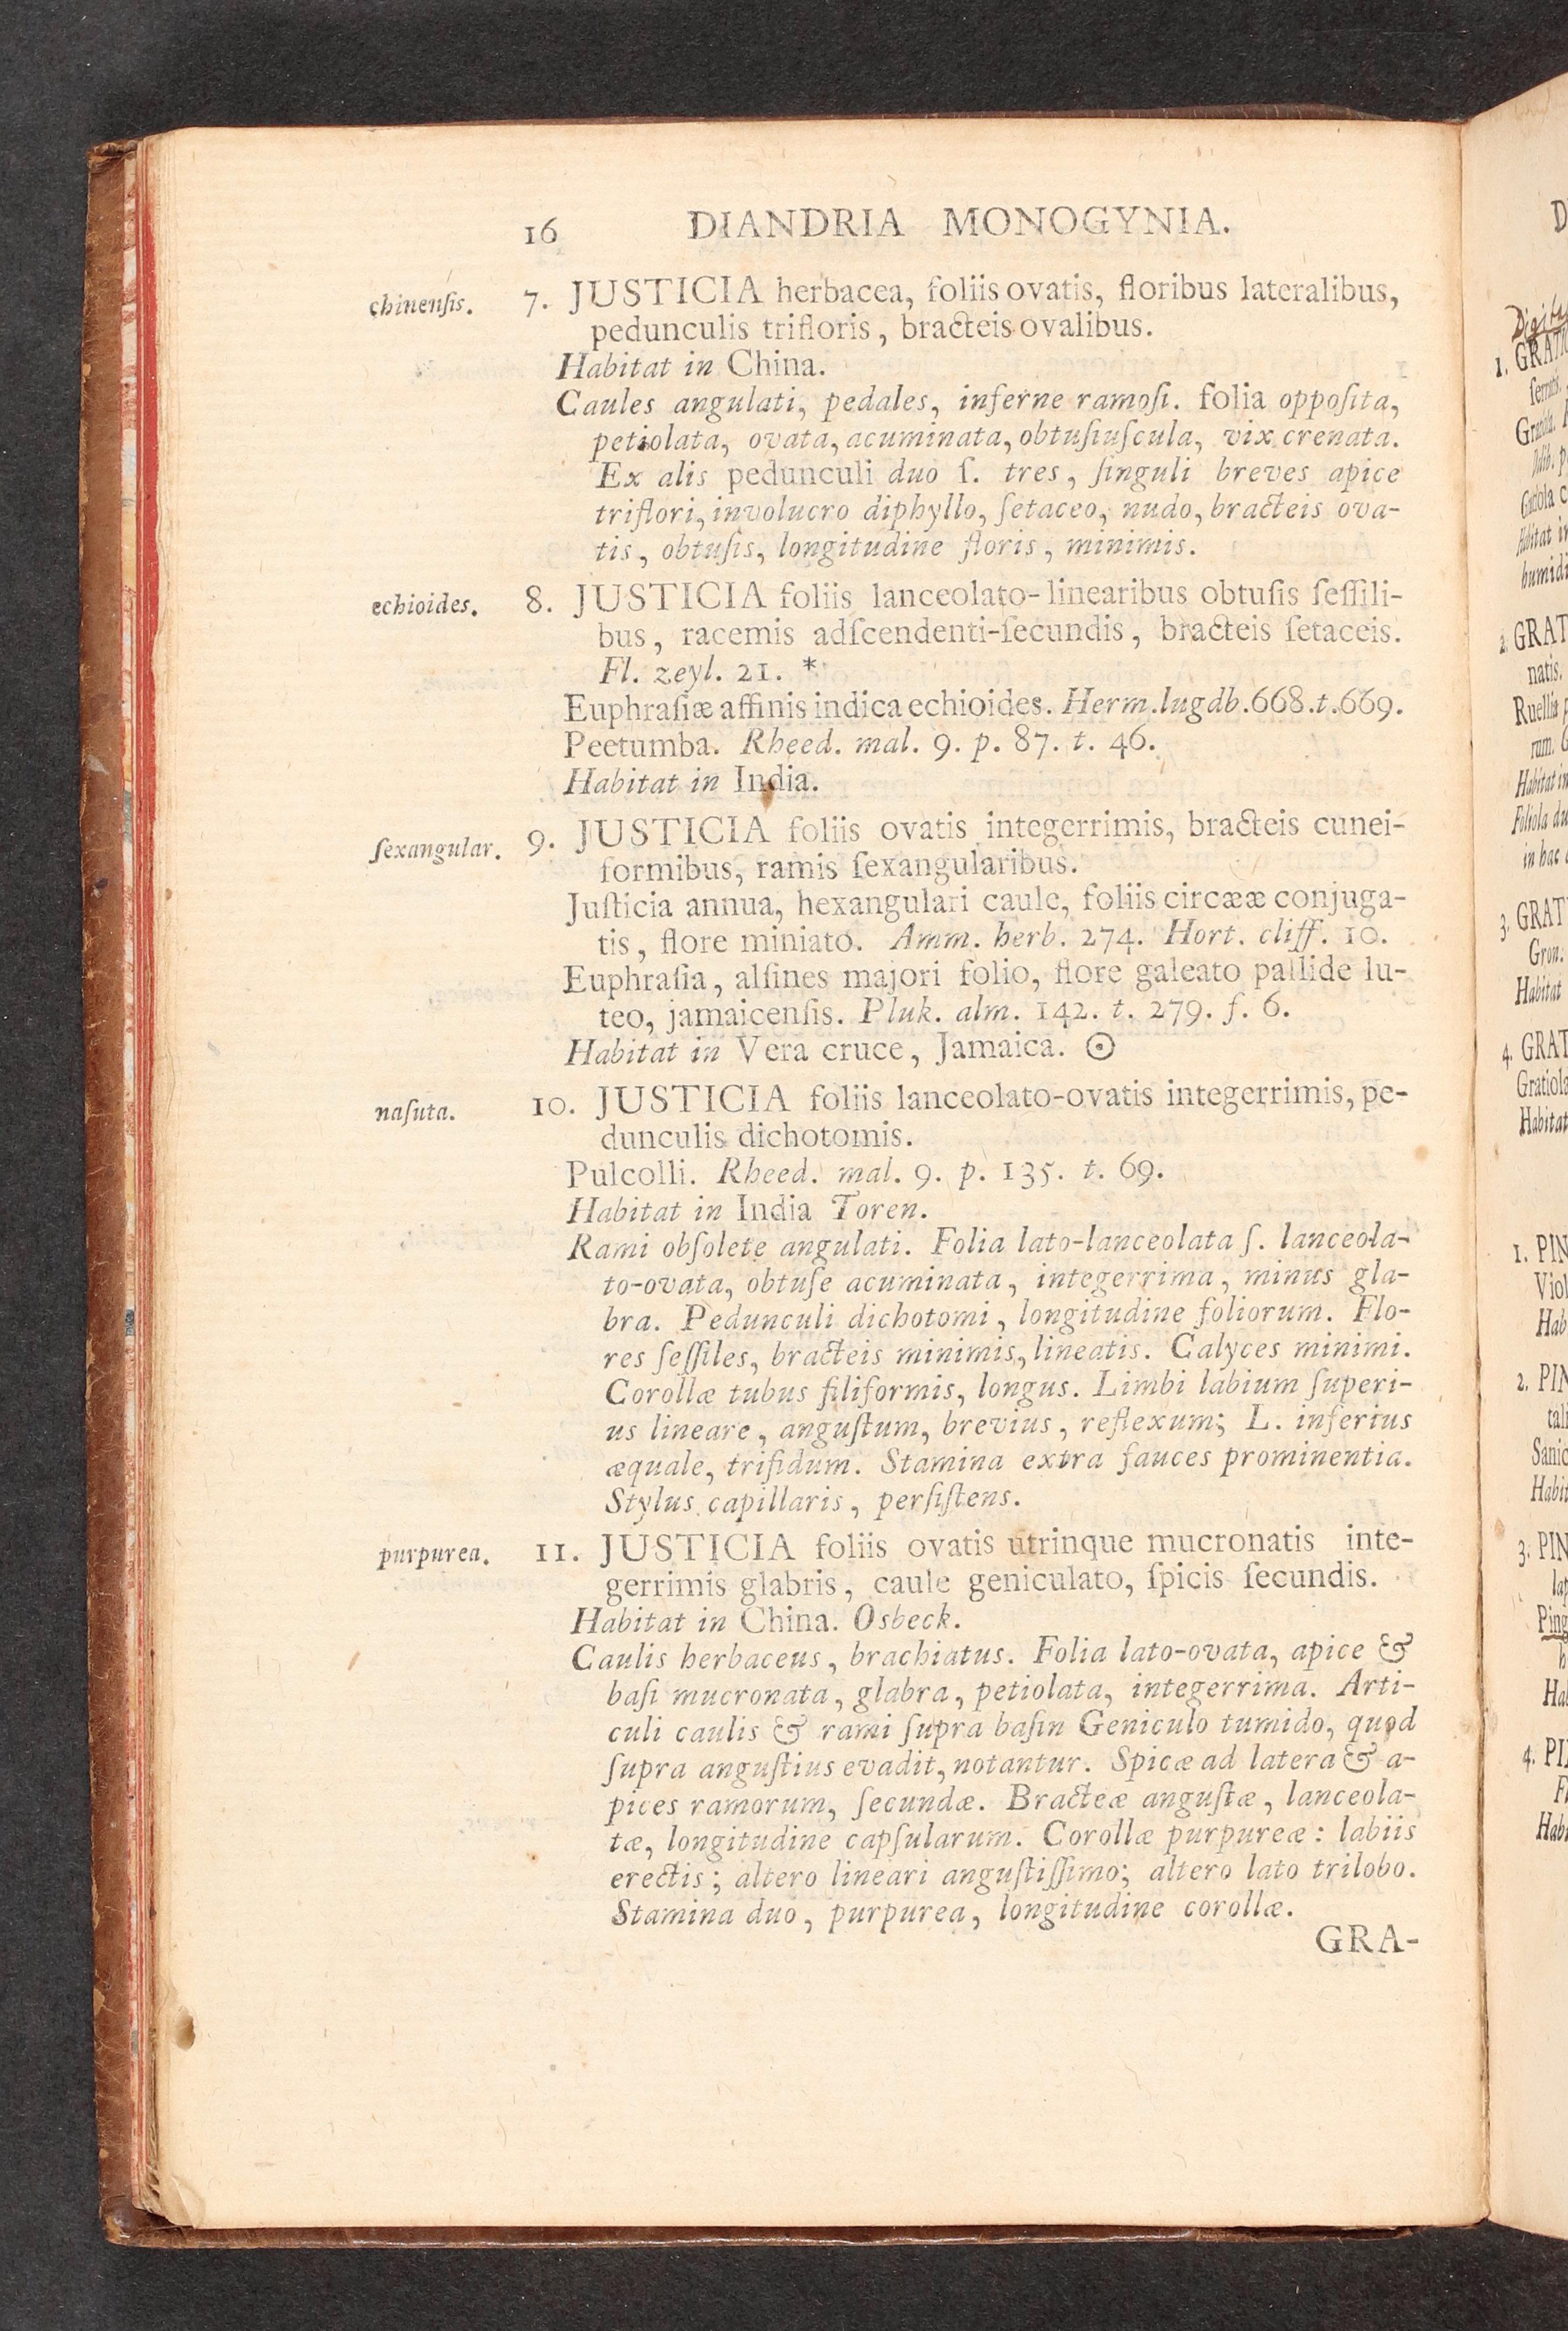 16 DIANDRIA MONOGYNIA.
chinenſis. 7. JUSTICIA herbacea, foliis ovatis, floribus lateralibus,
pedunculis trifloris, bracteis ovalibus.
Habitat in China.
Caules angulati, pedales, inferne ramoſi. folia oppoſita,
petiolata, ovata, acuminata, obtuſiuſcula, vix crenata.
Ex alis pedunculi duo ſ. tres, ſinguli breves apice
triflori, involucro diphyllo, ſetaceo, nudo, bracteis ova-
tis, obtuſis, longitudine floris, minimis.
echioides. 8. JUSTICIA foliis lanceolato-linearibus obtuſis ſeſſili-
bus, racemis adſcendenti-ſecundis, bracteis ſetaceis.
Fl. zeyl. 21. *
Euphraſiæ affinis indica echioides. Herm. lugdb. 668. t. 669.
Peetumba. Rheed. mal. 9. p. 87. t. 46.
Habitat in India.
ſexangular. 9. JUSTICIA foliis ovatis integerrimis, bracteis cunei-
formibus, ramis ſexangularibus.
Juſticia annua, hexangulari caule, foliis circææ conjuga-
tis, flore miniato. Amm. herb. 274. Hort. cliff. 10.
Euphraſia, alſines majori folio, flore galeato pallide lu-
teo, jamaicenſis. Pluk. alm. 142. t. 279. f. 6.
Habitat in Vera cruce, Jamaica. ☉
naſuta. 10. JUSTICIA foliis lanceolato-ovatis integerrimis, pe-
dunculis dichotomis.
Pulcolli. Rheed. mal. 9. p. 135. t. 69.
Habitat in India Toren.
Rami obſolete angulati. Folia lato-lanceolata ſ. lanceola-
to-ovata, obtuſe acuminata, integerrima, minus gla-
bra. Pedunculi dichotomi, longitudine foliorum. Flo-
res ſeſſiles, bracteis minimis, lineatis. Calyces minimi.
Corollæ tubus filiformis, longus. Limbi labium ſuperi-
us lineare, anguſtum, brevius, reflexum; L. inferius
æquale, trifidum. Stamina extra fauces prominentia.
Stylus capillaris, perſiſtens.
purpurea. 11. JUSTICIA foliis ovatis utrinque mucronatis inte-
gerrimis glabris, caule geniculato, ſpicis ſecundis.
Habitat in China. Osbeck.
Caulis herbaceus, brachiatus. Folia lato-ovata, apice &
baſi mucronata, glabra, petiolata, integerrima. Arti-
culi caulis & rami ſupra baſin Geniculo tumido, quod
ſupra anguſtius evadit, notantur. Spicæ ad latera & a-
pices ramorum, ſecundæ. Bracteæ anguſtæ, lanceola-
tæ, longitudine capſularum. Corollæ purpureæ: labiis
erectis; altero lineari anguſtiſſimo; altero lato trilobo.
Stamina duo, purpurea, longitudine corollæ.
GRA-
D
1. GRATIO
Gratiola
Habitat in
humidi
2. GRAT
natis.
Ruellia
rum.
Habitat in
Foliola du
in hac
3. GRAT
Gron.
Habitat
4. GRAT
Gratiola
Habitat
1. PIN
Viol
Hab
2. PIN
tali
Sanic
Habit
3. PIN
Ping
Hab
4. PI
Hab